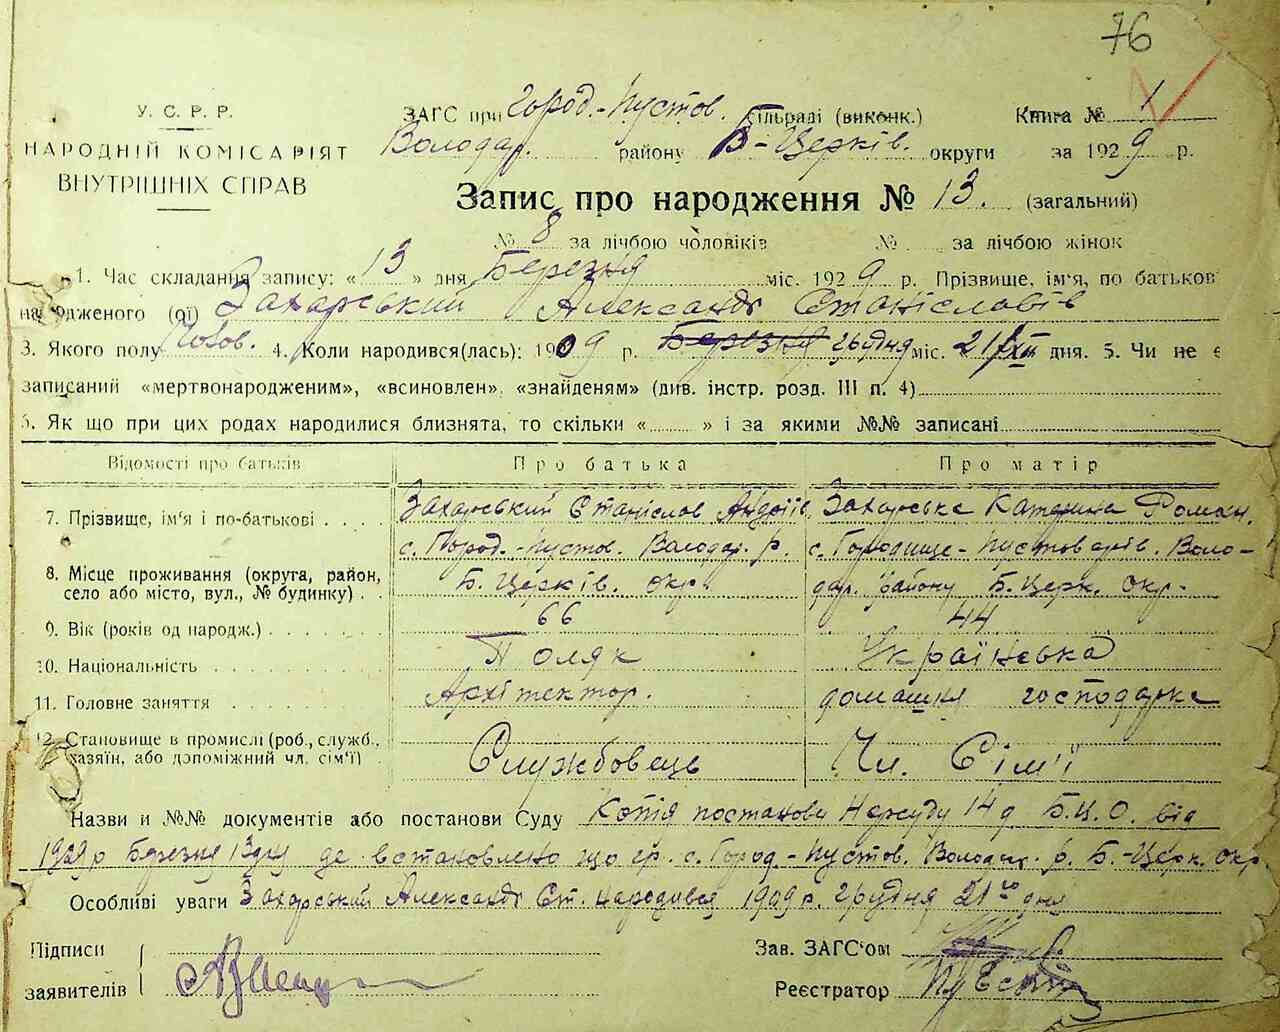 76
У. С. Р. Р.
НАРОДНІЙ КОМІСАРІЯТ
ВНУТРІШНІХ СПРАВ
ЗАГС при Город.-Пустов. сільраді (виконк.) Книга № 1
Володар. району Б-Церків. округи за 1929 р.
Запис про народження № 13. (загальний)
№ 8 за лічбою чоловіків № за лічбою жінок
1. Час складання запису: «13» дня Березня міс. 1929 р. Прізвище, ім'я, по батьков
народженого (ої) Захарський Александр Станіславів
3. Якого полу Чолов. 4. Коли народився(лась): 1909 р. Березня Грудня міс. 21/XII дня. 5. Чи не є
записаний «мертвонародженим», «всиновлен», «знайденям» (див. інстр. розд. III п. 4)
6. Як що при цих родах народилися близнята, то скільки « » і за якими №№ записані
Відомості про батьків Про батька Про матір
7. Прізвище, ім'я і по-батькові Захарський Станіслов Андріїв Захарська Катерина Роман.
8. Місце проживання (округа, район, село або місто, вул., № будинку) с. Город.-Пустов. Володар. р. Б. Церків. окр. с. Городище-Пустоварів. Воло-
дар. району Б. Церк. окр.
9. Вік (років од народж.) 66 44
10. Національність Поляк Українська
11. Головне заняття Архітектор. домашня господарка
12. Становище в промислі (роб., служб., хазяїн, або допоміжний чл. сім'ї) Службовець Чл. Сім'ї
Назви и №№ документів або постанови Суду Копія постанови Нарсуду 14 д Б.Ц.О. від
1929 р Березня 13 дня де встановлено що гр. с. Город-Пустов. Володар. р. Б.-Церк. окр
Особливі уваги Захарський Александр Ст. народився 1909 р. Грудня 21го дня
Підписи
заявителів
Зав. ЗАГС'ом
Реєстратор